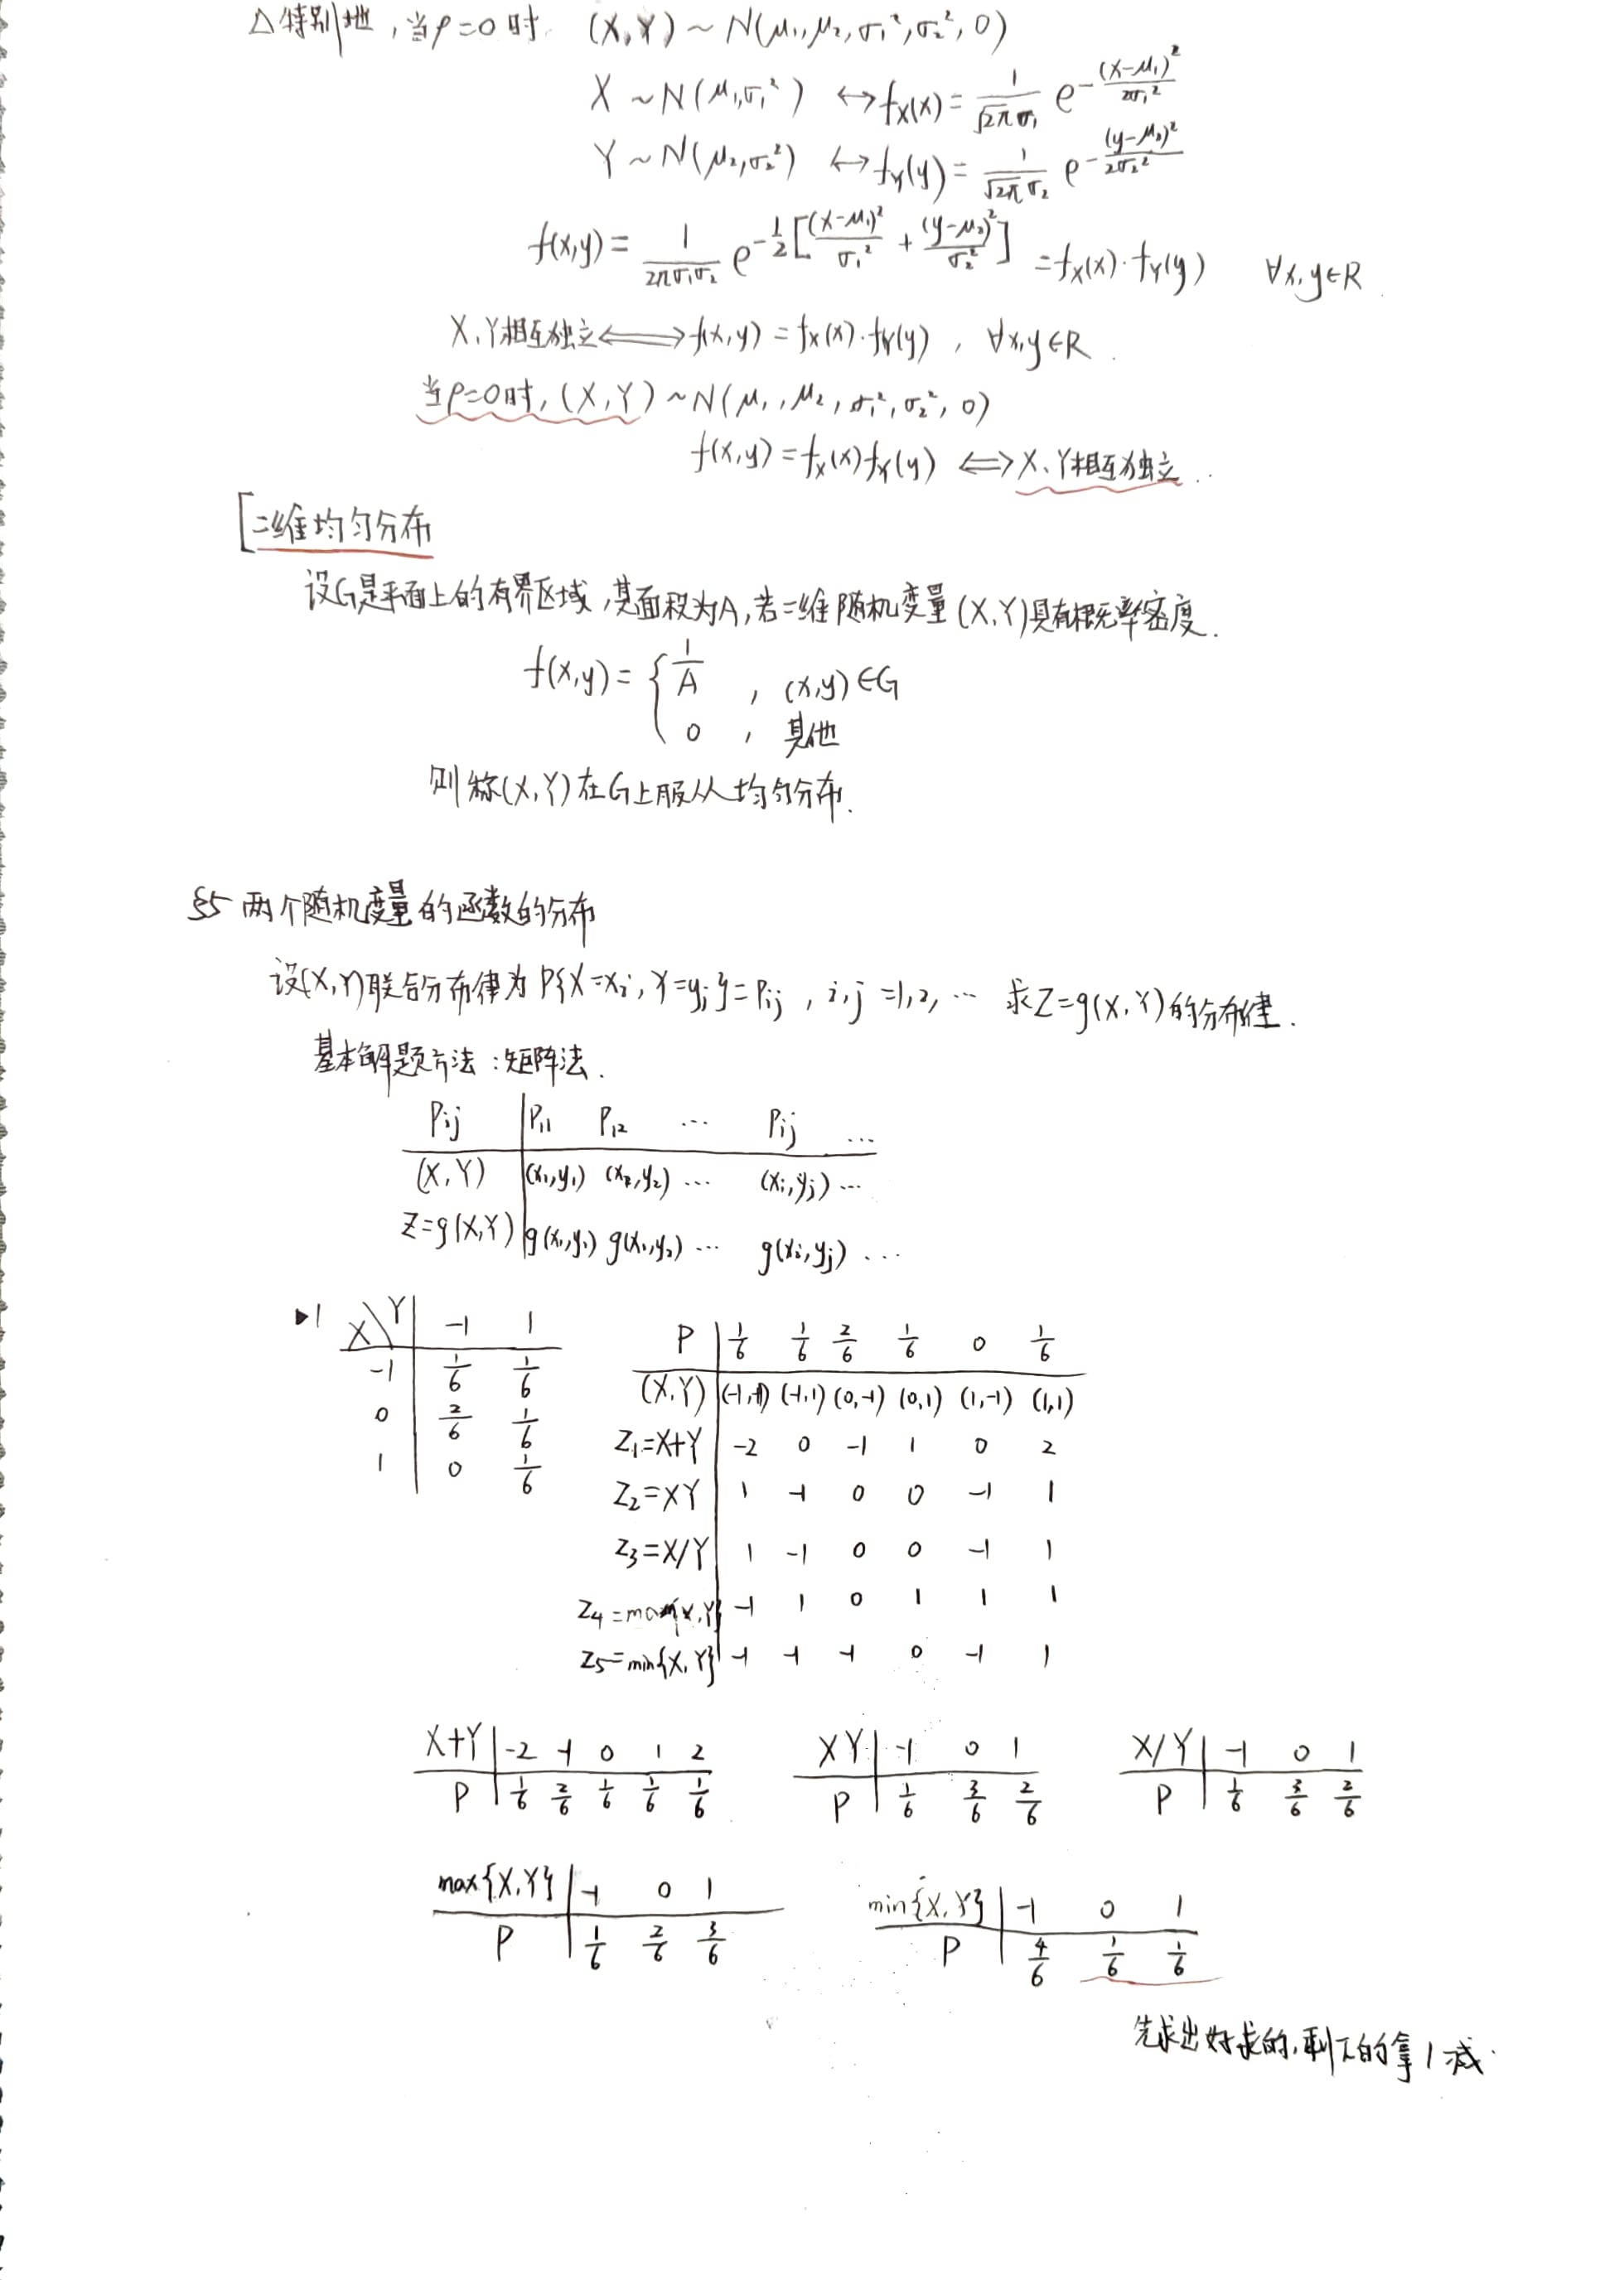 △特别地，当ρ=0时 (X,Y) ~ N(μ₁,μ₂,σ₁²,σ₂²,0)
X ~ N(μ₁,σ₁²) ↔ f_X(x) = 1/(√2π σ₁) e^{-(x-μ₁)²/2σ₁²}
Y ~ N(μ₂,σ₂²) ↔ f_Y(y) = 1/(√2π σ₂) e^{-(y-μ₂)²/2σ₂²}
f(x,y) = 1/(2πσ₁σ₂) e^{-1/2[(x-μ₁)²/σ₁² + (y-μ₂)²/σ₂²]} = f_X(x)·f_Y(y) ∀x,y∈R
X,Y相互独立 ⟺ f(x,y) = f_X(x)·f_Y(y)，∀x,y∈R.
当ρ=0时，(X,Y) ~ N(μ₁,μ₂,σ₁²,σ₂²,0)
f(x,y) = f_X(x)f_Y(y) ⟺ X、Y相互独立.
[二维均匀分布
设G是平面上的有界区域，其面积为A，若二维随机变量(X,Y)具有概率密度.
f(x,y) = { 1/A ，(x,y)∈G
0 ，其他
则称(X,Y)在G上服从均匀分布.
§5 两个随机变量的函数的分布
设(X,Y)联合分布律为P{X=xᵢ,Y=yⱼ}=Pᵢⱼ，i,j=1,2,… 求Z=g(X,Y)的分布律.
基本解题方法：矩阵法.
Pᵢⱼ | P₁₁ P₁₂ … Pᵢⱼ …
(X,Y) | (x₁,y₁) (x₁,y₂) … (xᵢ,yⱼ) …
Z=g(X,Y) | g(x₁,y₁) g(x₁,y₂) … g(xᵢ,yⱼ) …
▶1 X\Y | -1 1
-1 | 1/6 1/6
0 | 2/6 1/6
1 | 0 1/6
P | 1/6 1/6 2/6 1/6 0 1/6
(X,Y) | (-1,-1) (-1,1) (0,-1) (0,1) (1,-1) (1,1)
Z₁=X+Y | -2 0 -1 1 0 2
Z₂=XY | 1 -1 0 0 -1 1
Z₃=X/Y | 1 -1 0 0 -1 1
Z₄=max{X,Y} | -1 1 0 1 1 1
Z₅=min{X,Y} | -1 -1 -1 0 -1 1
X+Y | -2 -1 0 1 2
P | 1/6 2/6 1/6 1/6 1/6
XY | -1 0 1
P | 1/6 3/6 2/6
X/Y | -1 0 1
P | 1/6 3/6 2/6
max{X,Y} | -1 0 1
P | 1/6 2/6 3/6
min{X,Y} | -1 0 1
P | 4/6 1/6 1/6
先求出好求的，剩下的拿1减.